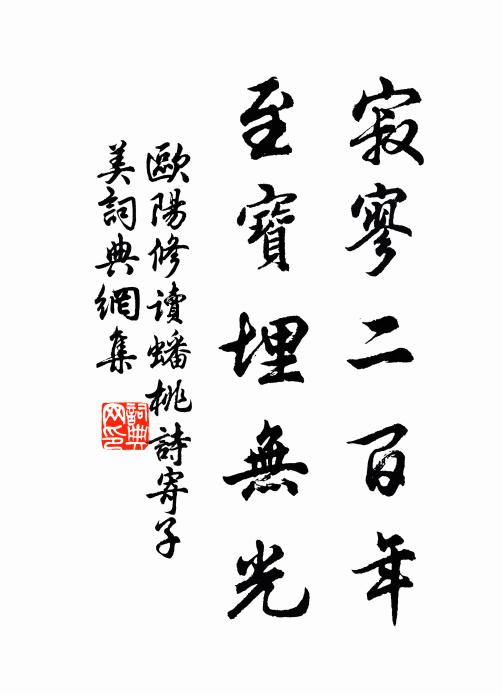 寂寥二百年
至寶埋無光
歐陽修讀蟠桃詩寄子
美詞典網集
詞典
网印